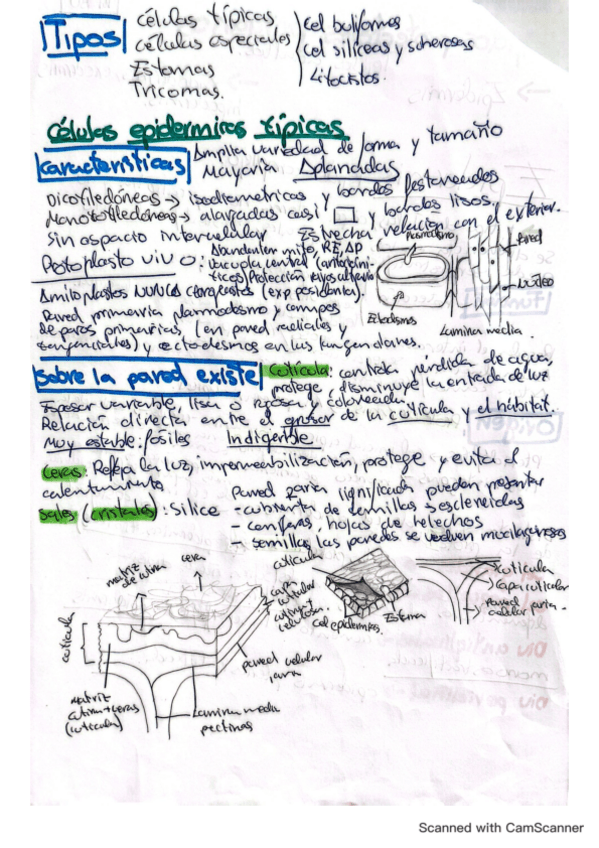 Tipos
células típicas
células especiales
Estomas
Tricomas.
cel buliformes
cel silíceas y suberosas
Litocistos.
Células epidermicas típicas
Características
Amplia variedad de forma y tamaño
Mayoría Aplanadas
Dicotiledóneas → isodiametricas y bordes festoneados
Monocotiledóneas → alargadas casi □ y bordes lisos.
Sin espacio intercelular Estrecha relación con el exterior.
Protoplasto vivo: Abundantes mito, RE, AP
vacuola central
Amiloplastos NUNCA cloroplastos (exp
Pared primaria plasmodesmo y campos
de poros primarios, (en pared radiales y
tangenciales) y ectodesmos en las tangenciales.
Plasmodesmo
Pared
Núcleo
Ectodesmos
Lamina media
Sobre la pared existe
Cutícula: controla pérdida de agua,
protege, disminuye la entrada de luz
Espesor variable, lisa o rugosa y coloreada
Relación directa entre el grosor de la cutícula y el hábitat.
Muy estable: fósiles Indigerible
Ceras: Refleja la luz, impermeabilización, protege y evita el
calentamiento
Sales (cristales): Silice
Pared paria lignificada pueden presentar
- cubierta de semillas y esclereidas
- coníferas, hojas de helechos
- semillas, las paredes se vuelven mucilaginosas
matriz de cutina
cera
cuticula
capa cuticular
cutina + celulosa
pared celular
matriz cutina + ceras (cuticula)
Lamina media pectinas
cuticula
cel epidermicas
Estoma
cuticula
Capa cuticular
Pared celular paria
Scanned with CamScanner